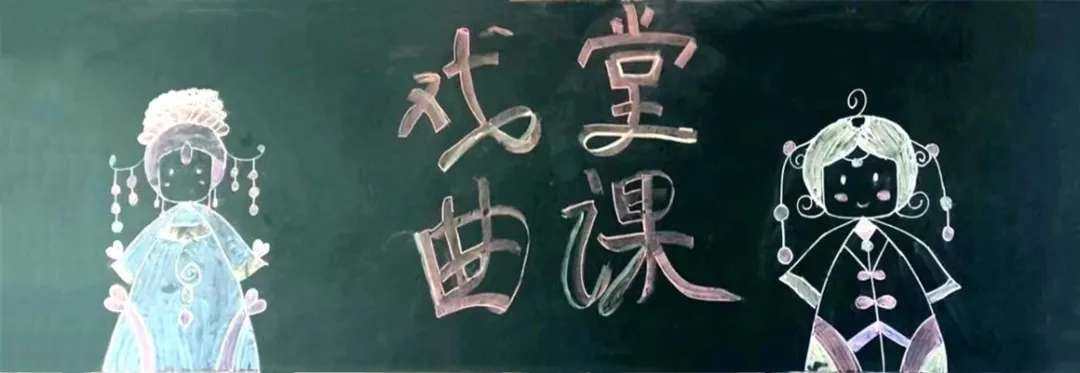 戏曲
课堂